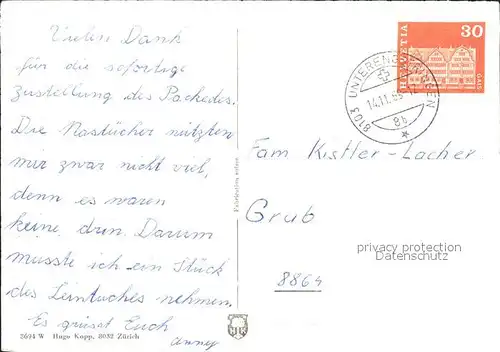 Vielen Dank
für die sofortige
Zustellung des Packedes.
Die Nastücher nützten
mir zwar nicht viel,
denn es waren
keine drin. Darum
musste ich ein Stück
des Leintuches nehmen.
Es grüsst Euch
Anny
2694 W Hugo Kopp, 8052 Zürich
HELVETIA
30
GAIS
8103 UNTERENGSTRINGEN
14.11.69
8b
Fam Kistler-Lacher
Grub
8864
privacy protection
Datenschutz